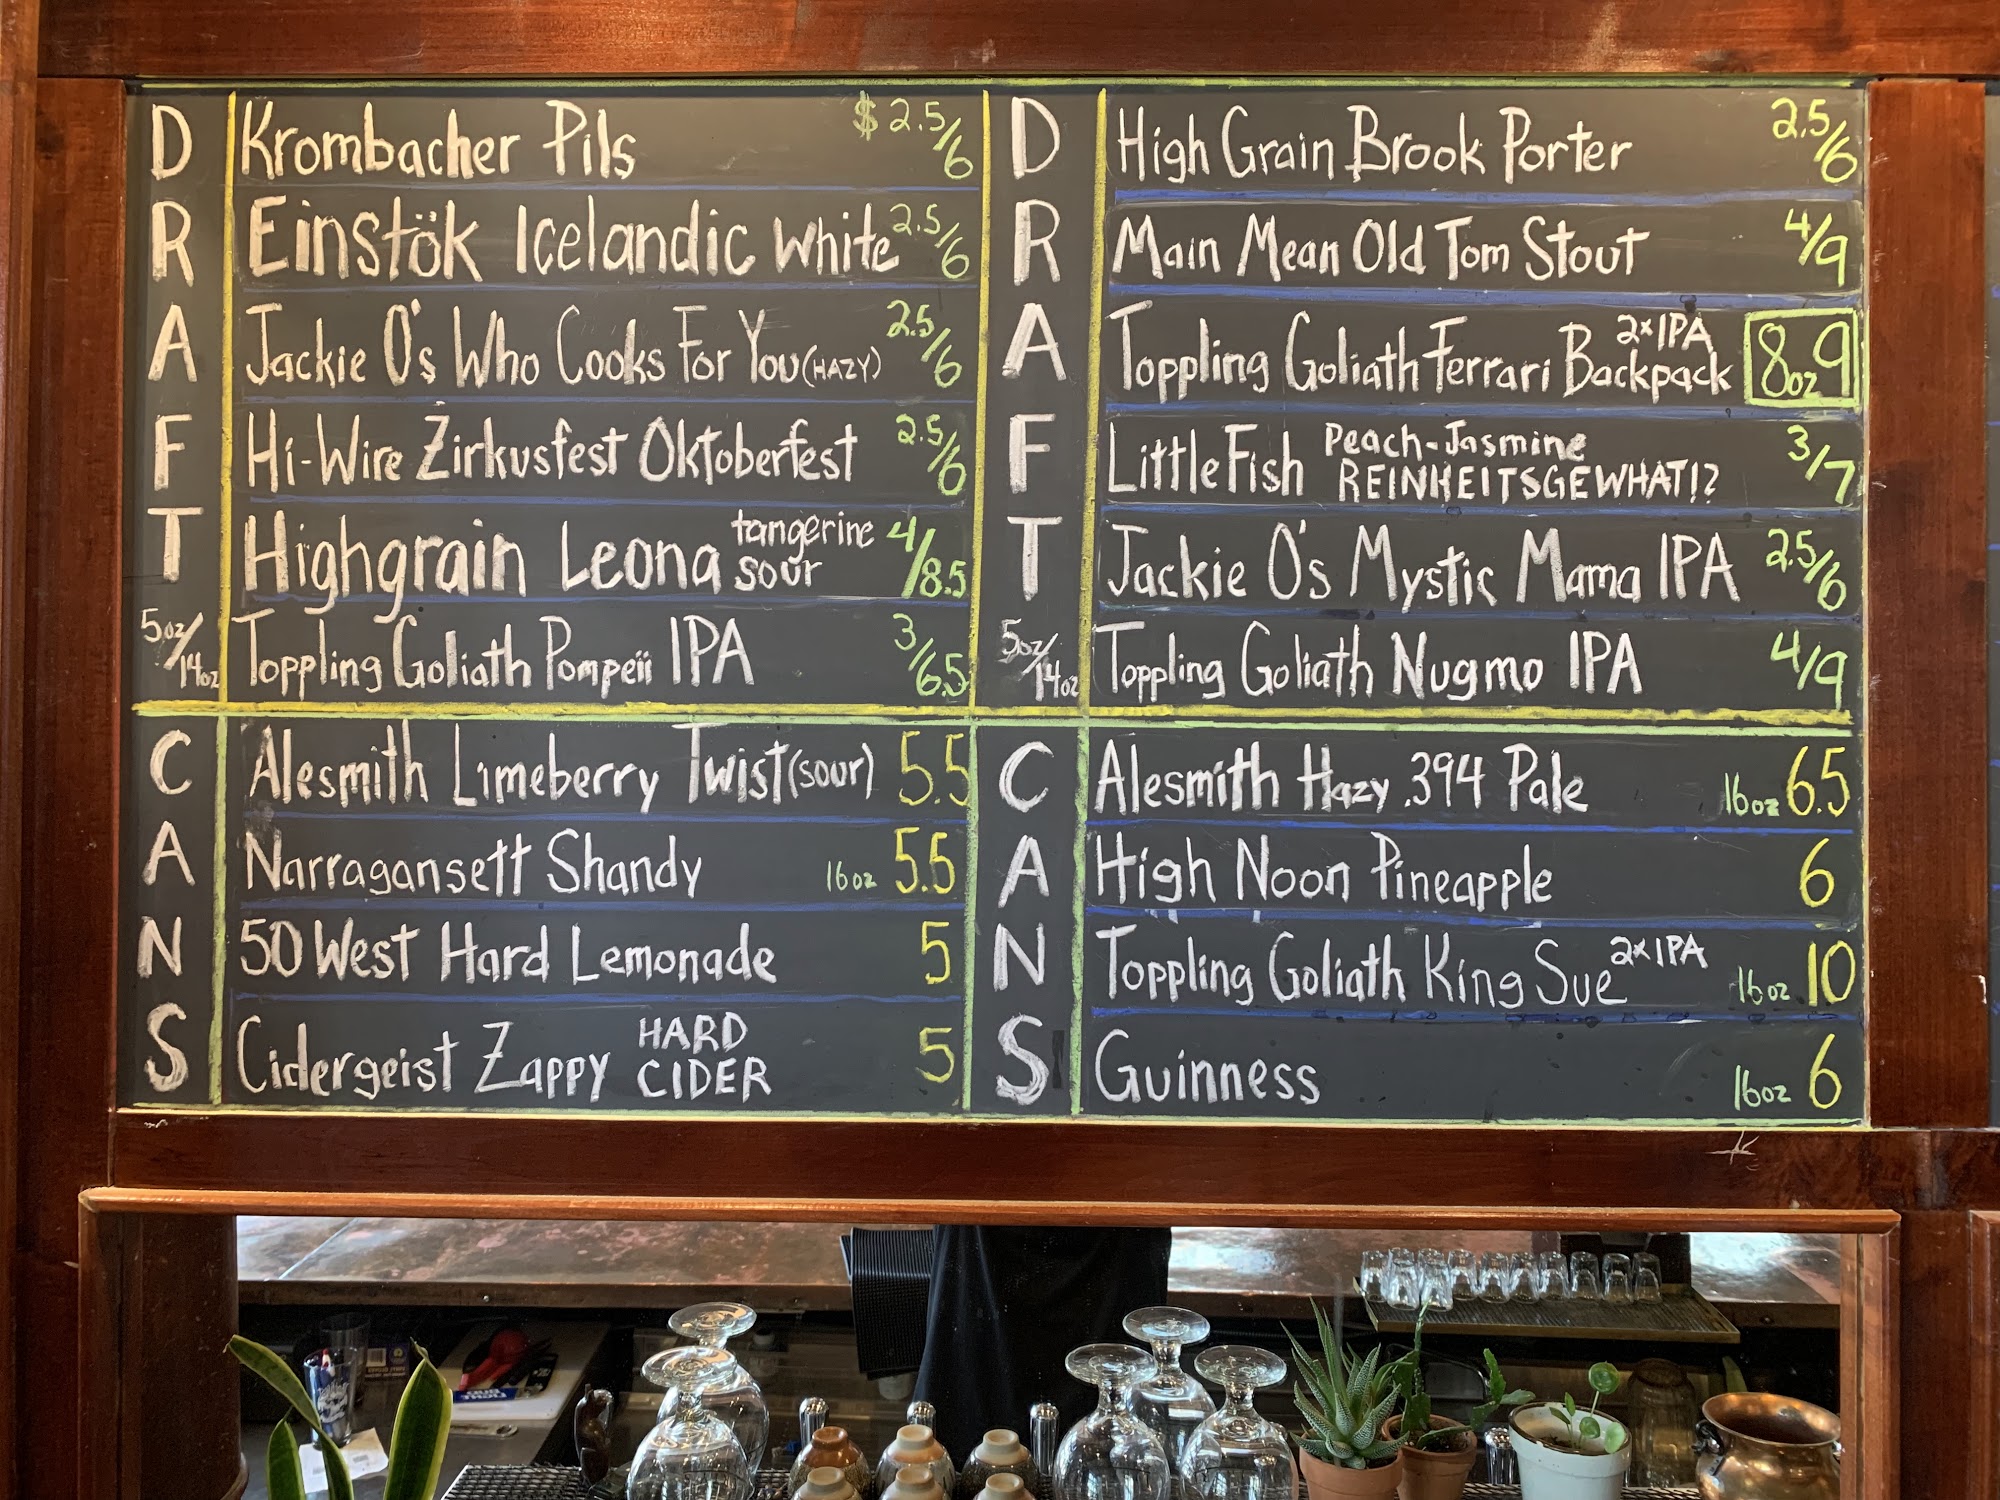 DRAFT 5oz/14oz
Krombacher Pils $2.5/6
Einstök Icelandic White 2.5/6
Jackie O's Who Cooks For You (HAZY) 2.5/6
Hi-Wire Zirkusfest Oktoberfest 2.5/6
Highgrain Leona tangerine sour 4/8.5
Toppling Goliath Pompeii IPA 3/6.5
CANS
Alesmith Limeberry Twist (sour) 5.5
Narragansett Shandy 16oz 5.5
50 West Hard Lemonade 5
Cidergeist Zappy HARD CIDER 5
DRAFT 5oz/14oz
High Grain Brook Porter 2.5/6
Main Mean Old Tom Stout 4/9
Toppling Goliath Ferrari Backpack 2xIPA 8oz 9
Little Fish Peach-Jasmine REINHEITSGEWHAT!? 3/7
Jackie O's Mystic Mama IPA 2.5/6
Toppling Goliath Nugmo IPA 4/9
CANS
Alesmith Hazy .394 Pale 16oz 6.5
High Noon Pineapple 6
Toppling Goliath King Sue 2xIPA 16oz 10
Guinness 16oz 6